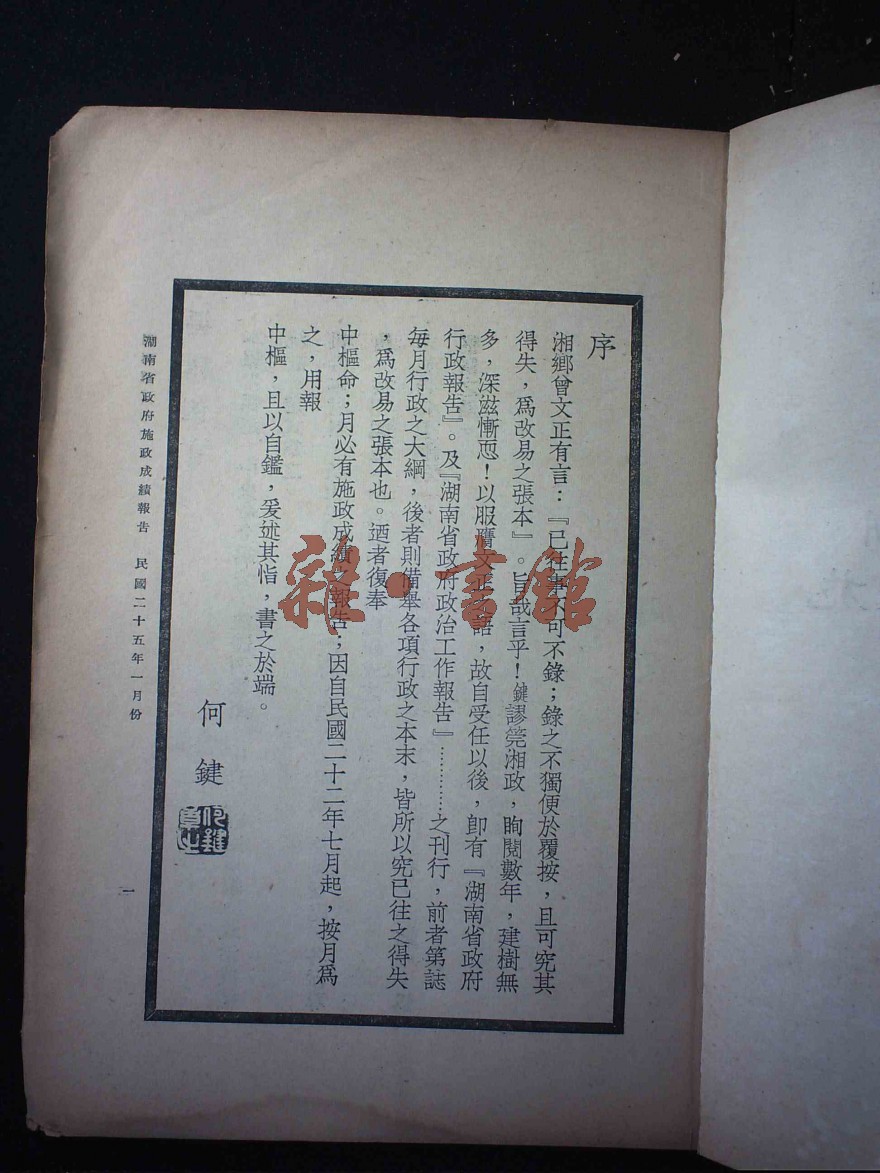 序
湘鄉曾文正有言：『已往事不可不錄；錄之不獨便於覆按，且可究其
得失，爲改易之張本』。旨哉言乎！鍵謬筦湘政，眴閱數年，建樹無
多，深滋慚恧！以服膺文正之語，故自受任以後，卽有『湖南省政府
行政報告』。及『湖南省政府政治工作報告』…………之刊行，前者第誌
每月行政之大綱，後者則備舉各項行政之本末，皆所以究已往之得失
，爲改易之張本也。迺者復奉
中樞命；月必有施政成績之報告；因自民國二十二年七月起，按月爲
之，用報
中樞，且以自鑑，爰述其恉，書之於端。
何鍵
何鍵章
湖南省政府施政成績報告　民國二十五年一月份
一
雜·書館